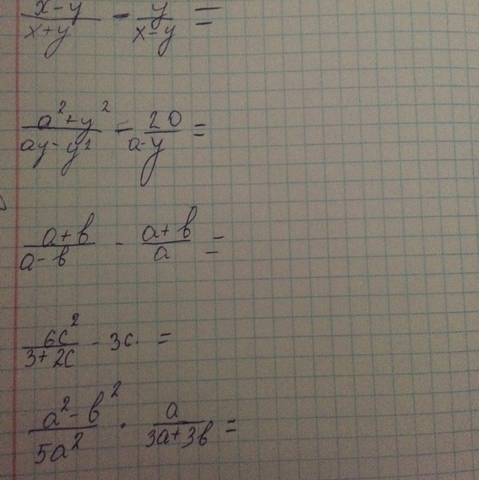 (x-y)/(x+y) - y/(x-y) =
(a²+y²)/(ay-y²) - 20/(a-y) =
(a+b)/(a-b) - (a+b)/a =
6c²/(3+2c) - 3c. =
(a²-b²)/5a² · a/(3a+3b) =